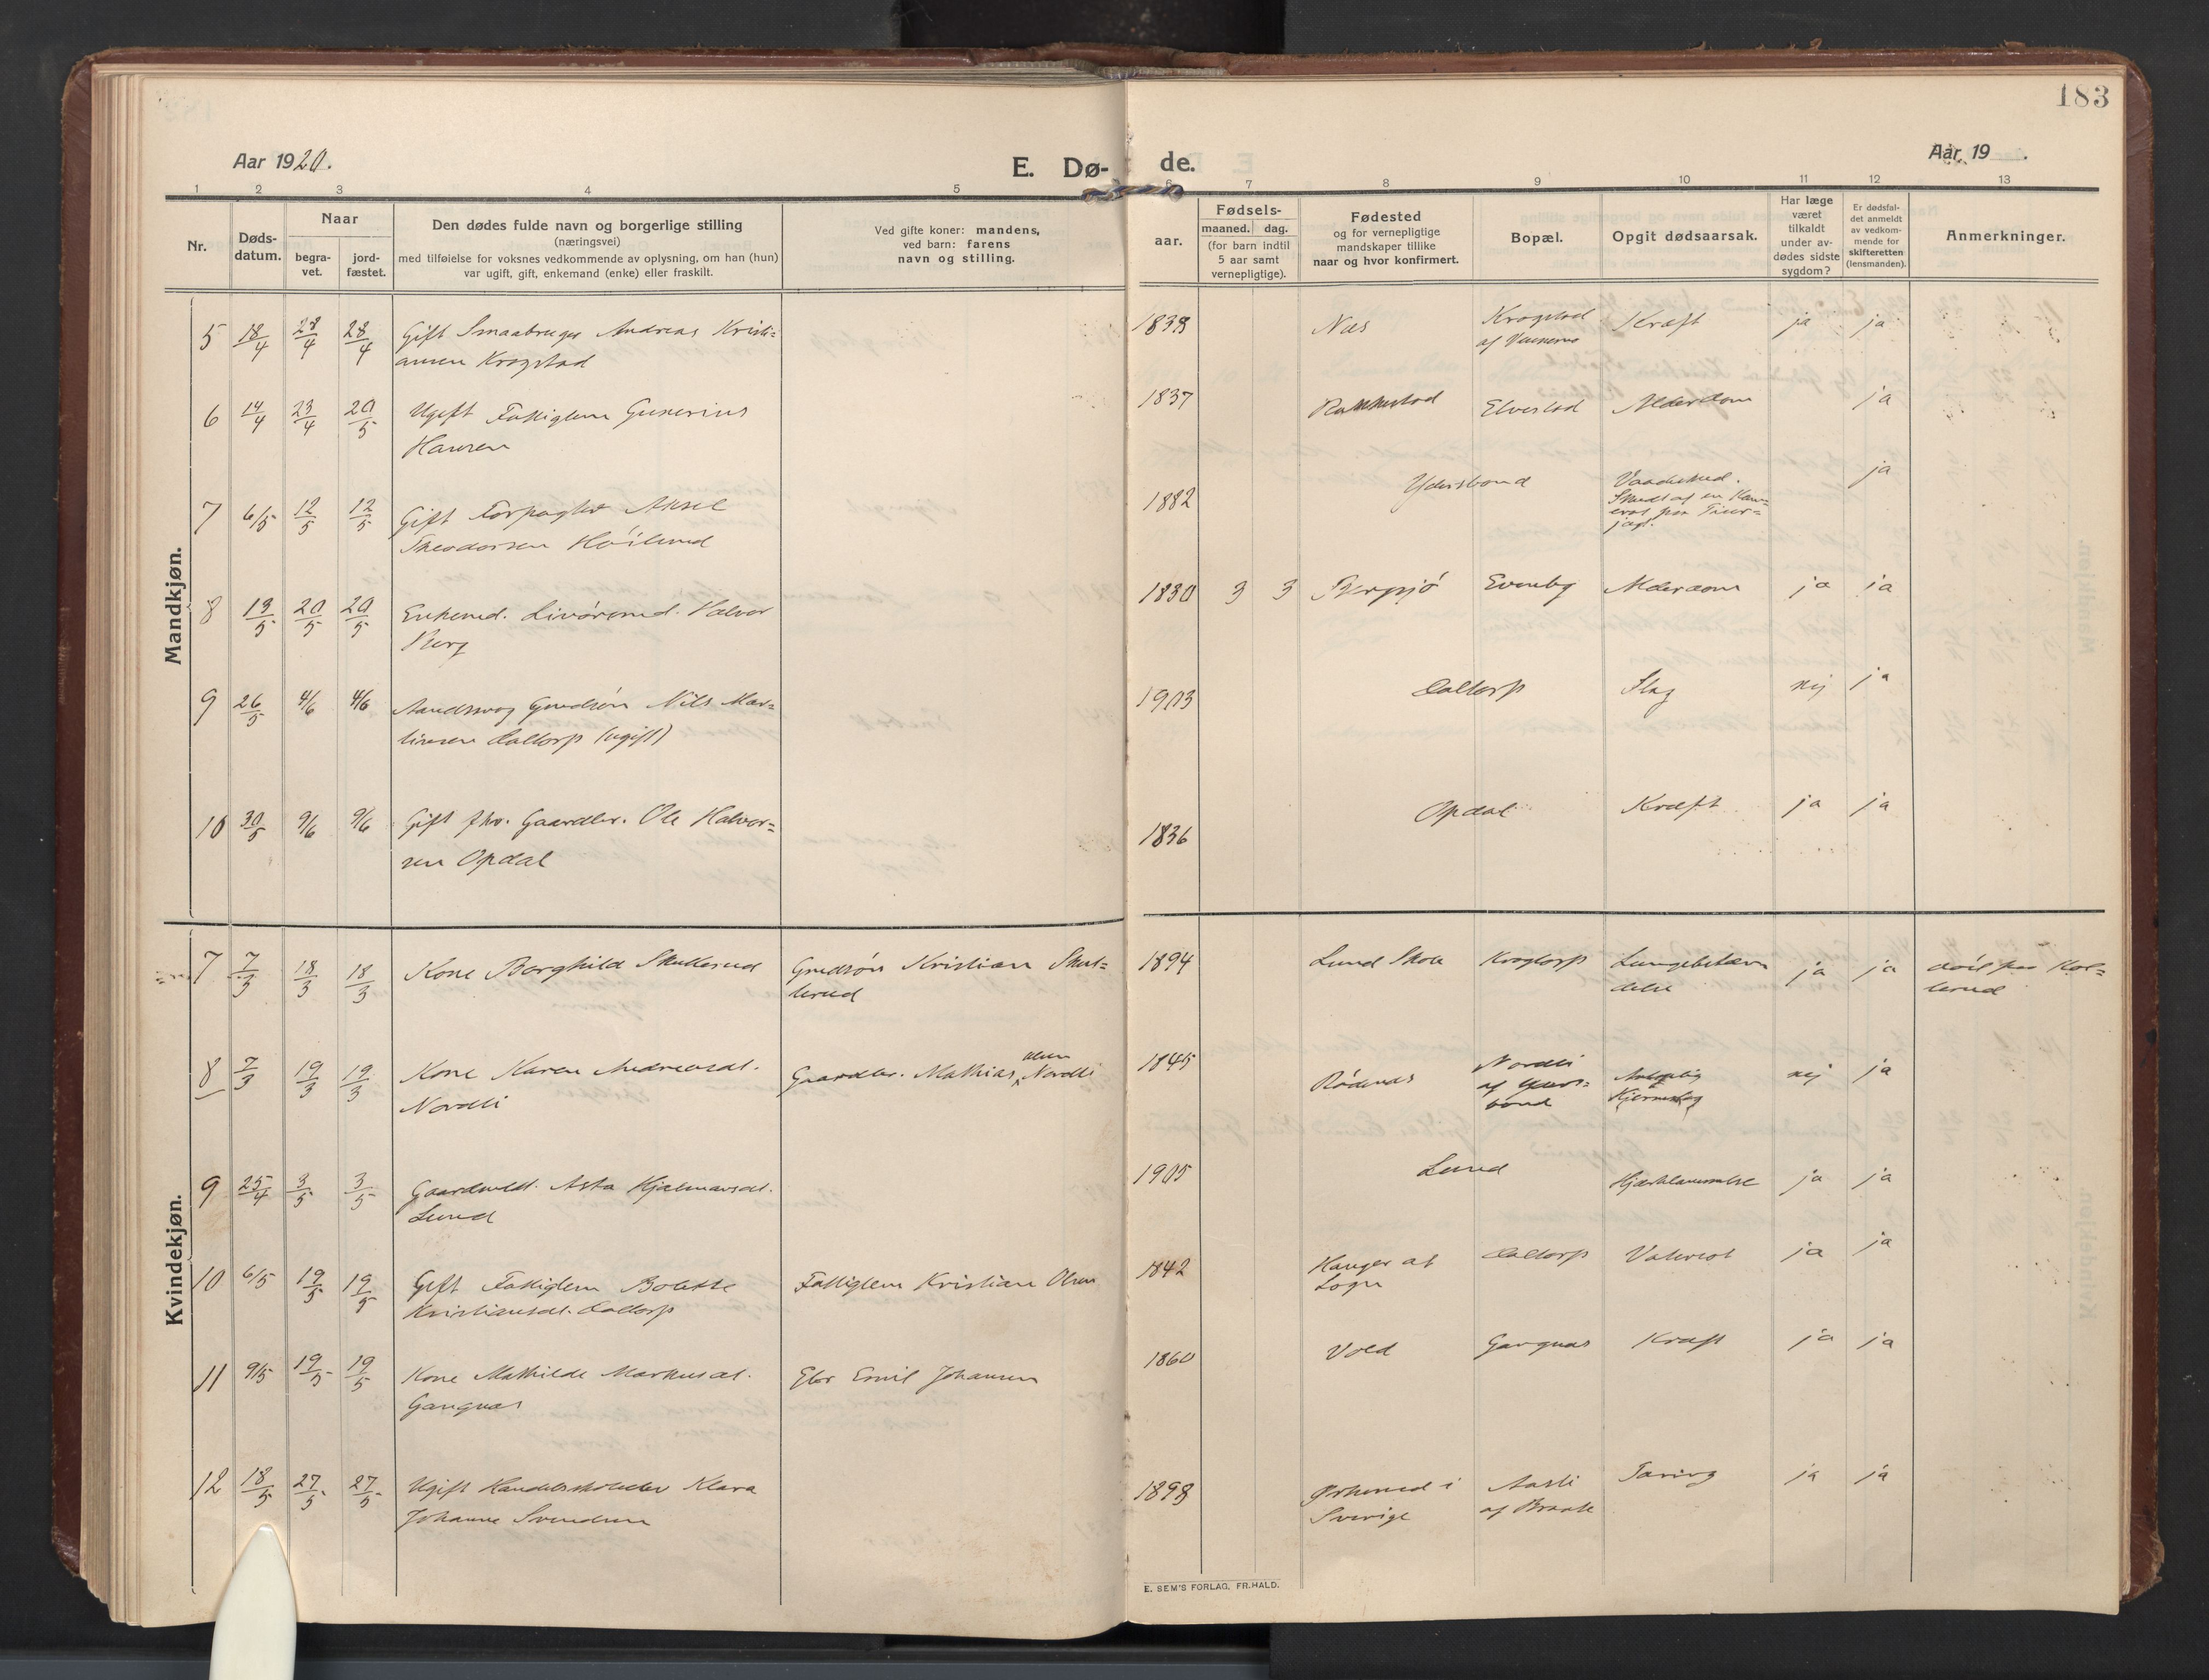 183
Aar 1920.
E. Dø-
de.
Aar 19 .
1 2 3 4 5 6 7 8 9 10 11 12 13
Nr.
Døds-
datum.
Naar
begra-
vet.
jord-
fæstet.
Den dødes fulde navn og borgerlige stilling
(næringsvei)
med tilføielse for voksnes vedkommende av oplysning, om han (hun)
var ugift, gift, enkemand (enke) eller fraskilt.
Ved gifte koner: mandens,
ved barn: farens
navn og stilling.
aar.
Fødsels-
maaned. dag.
(for barn indtil
5 aar samt
vernepligtige).
Fødested
og for vernepligtige
mandskaper tillike
naar og hvor konfirmert.
Bopæl.
Opgit dødsaarsak.
Har læge
været
tilkaldt
under av-
dødes sidste
sygdom?
Er dødsfal-
det anmeldt
av vedkom-
mende for
skifteretten
(lensmanden).
Anmerkninger.
Mandkjøn.
5 18/4 28/4 28/4 Gift Smaabruger Andreas Kristi=
ansen Krogstad
1839 Næs Krogstad
af
Kræft ja ja
6 14/4 23/4 20/5 Ugift Fattiglem Gunerius
Hansen
1837 Rakkestad Elvestad Alderdom ja
7 6/5 12/5 12/5 Gift Forpagter Aksel
Theodorsen Höilund
1882 Ydersbond Vaadeskud.
Skudt af en Kam=
erat paa Tiur=
jagt.
ja
8 13/5 20/5 20/5 Enkemd. Livöremd. Halvor
Berg
1830 3 3 Bergsjö Evenby Alderdom ja ja
9 26/5 4/6 4/6 Aandssvag Grudsön Nils Mar=
tinsen Caltorp (ugift)
1903 Caltorp Slag nej ja
10 30/5 9/6 9/6 Gift fhv. Gaardbr. Ole Halvor=
sen Opdal
1836 Opdal Kræft ja ja
Kvindekjøn.
7 7/3 18/3 18/3 Kone Borghild Skullerud
Grudsön Kristian Skul=
lerud
1894 Lund Skole Krogtorp Lungebetæn
delse
ja ja död paa Kol=
lerud
8 7/3 19/3 19/3 Kone Karen Andreasdt.
Nordli
Gaardbr. Mathias Olsen Nordli
1845 Rödenæs Nordli
af Yders=
bond
Hjerneslag
nej ja
9 25/4 3/5 3/5 Gaardmdt. Asta Hjalmarsdt.
Lund
1905 Lund Hjertelammelse ja ja
10 6/5 19/5 19/5 Gift Fattiglem Bolette
Kristiansdt. Caltorp
Fattiglem Kristian Olsen
1842
Sogn
Caltorp Vatersot ja ja
11 9/5 19/5 19/5 Kone Mathilde Markusdt.
Gangnæs
Gbr Emil Johansen
1860 Vold Gangnæs Kræft ja ja
12 18/5 27/5 27/5 Ugift Klara
Johanne Svendsen
1898
Sverige
Aasli
af Braate
Tæring ja ja
E. SEM'S FORLAG, FR.HALD.